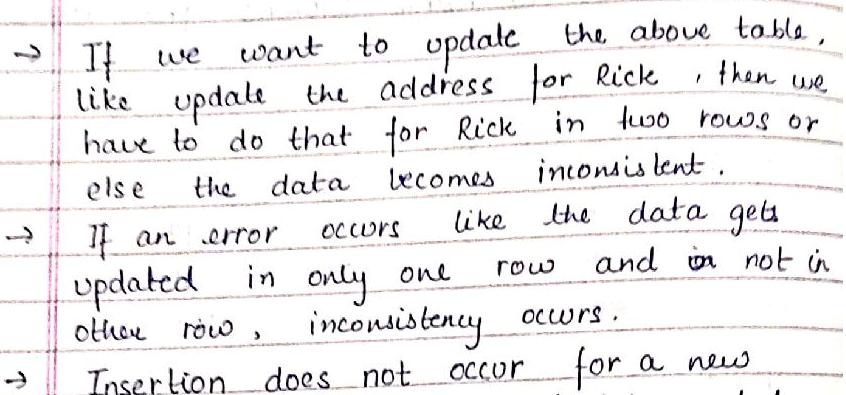 → If we want to update the above table,
like update the address for Rick, then we
have to do that for Rick in two rows or
else the data becomes inconsistent.
→ If an error occurs like the data gets
updated in only one row and not in
other row, inconsistency occurs.
→ Insertion does not occur for a new